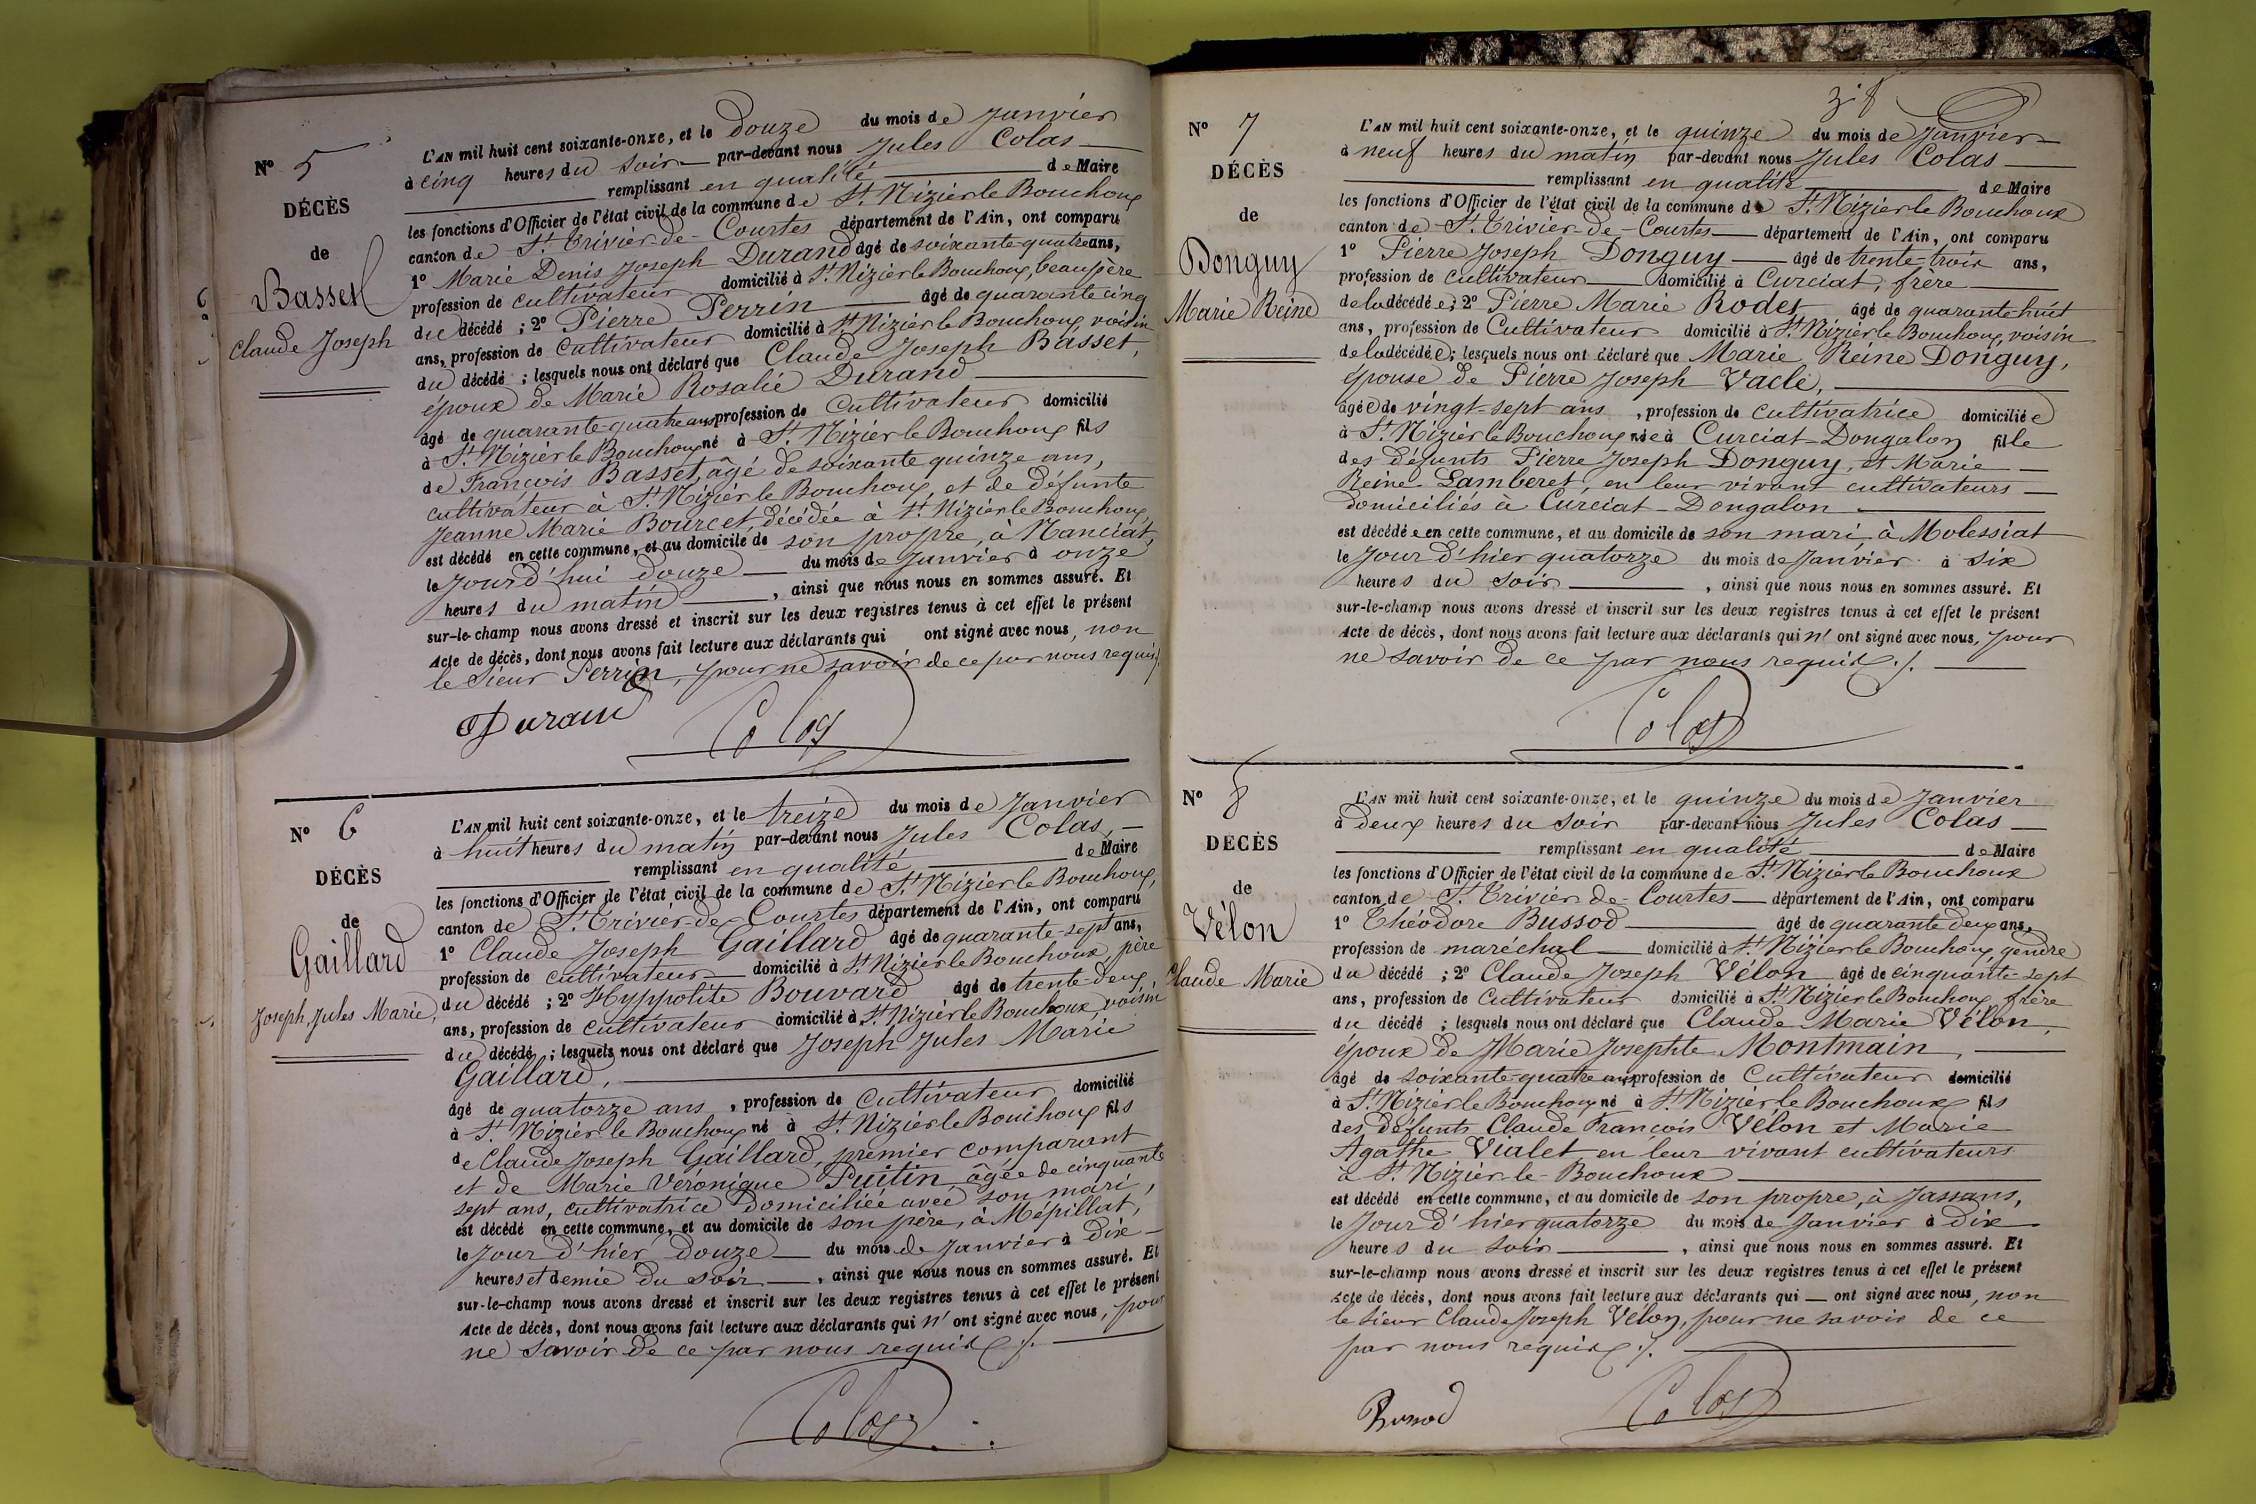 N° 5
DÉCÈS
de
Basset
Claude Joseph
L'AN mil huit cent soixante-onze, et le douze du mois de Janvier
à cinq heures du soir par-devant nous Jules Colas
remplissant en qualité de Maire
les fonctions d'Officier de l'état civil de la commune de St. Nizier le Bouchoux
canton de St. Trivier-de-Courtes département de l'Ain, ont comparu
1° Marie Denis Joseph Durand âgé de soixante-quatre ans,
profession de cultivateur domicilié à St. Nizier le Bouchoux, beau père
du décédé ; 2° Pierre Perrin âgé de quarante cinq
ans, profession de cultivateur domicilié à St. Nizier le Bouchoux, voisin
du décédé ; lesquels nous ont déclaré que Claude Joseph Basset,
époux de Marie Rosalie Durand
âgé de quarante-quatre ans profession de cultivateur domicilié
à St. Nizier le Bouchoux né à St. Nizier le Bouchoux fils
de François Basset, âgé de soixante quinze ans,
cultivateur à St. Nizier le Bouchoux et de défunte
Jeanne Marie Bourcet, décédée à St. Nizier le Bouchoux,
est décédé en cette commune, et au domicile de son propre, à Nanciat,
le jour d'hui douze du mois de Janvier à onze
heures du matin, ainsi que nous nous en sommes assuré. Et
sur-le-champ nous avons dressé et inscrit sur les deux registres tenus à cet effet le présent
Acte de décès, dont nous avons fait lecture aux déclarants qui ont signé avec nous, non
le sieur Perrin, pour ne savoir de ce par nous requis ./.
Durand Colas
N° 6
DÉCÈS
de
Gaillard
Joseph, Jules Marie,
L'AN mil huit cent soixante-onze, et le treize du mois de Janvier
à huit heures du matin par-devant nous Jules Colas,
remplissant en qualité de Maire
les fonctions d'Officier de l'état civil de la commune de St. Nizier le Bouchoux,
canton de St. Trivier-de-Courtes département de l'Ain, ont comparu
1° Claude Joseph Gaillard âgé de quarante-sept ans,
profession de cultivateur domicilié à St. Nizier le Bouchoux, père
du décédé ; 2° Hyppolite Bouvard âgé de trente-deux
ans, profession de cultivateur domicilié à St. Nizier le Bouchoux, voisin
du décédé ; lesquels nous ont déclaré que Joseph Jules Marie
Gaillard,
âgé de quatorze ans, profession de cultivateur domicilié
à St. Nizier le Bouchoux né à St. Nizier le Bouchoux fils
de Claude Joseph Gaillard, premier comparant
et de Marie Véronique Puitin, âgée de cinquante
sept ans, cultivatrice domiciliée avec son mari,
est décédé en cette commune, et au domicile de son père, à Mépillat,
le jour d'hier douze du mois de Janvier à dix
heures et demie du soir, ainsi que nous nous en sommes assuré. Et
sur-le-champ nous avons dressé et inscrit sur les deux registres tenus à cet effet le présent
Acte de décès, dont nous avons fait lecture aux déclarants qui n'ont signé avec nous, pour
ne savoir de ce par nous requis ./.
Colas
N° 7
DÉCÈS
de
Donguy
Marie Reine
L'AN mil huit cent soixante-onze, et le quinze du mois de Janvier
à neuf heures du matin par-devant nous Jules Colas
remplissant en qualité de Maire
les fonctions d'Officier de l'état civil de la commune de St. Nizier le Bouchoux
canton de St. Trivier-de-Courtes département de l'Ain, ont comparu
1° Pierre Joseph Donguy âgé de trente-trois ans,
profession de cultivateur domicilié à Curciat, frère
de la décédée ; 2° Pierre Marie Rodet âgé de quarante huit
ans, profession de Cultivateur domicilié à St. Nizier le Bouchoux, voisin
de la décédée ; lesquels nous ont déclaré que Marie Reine Donguy,
épouse de Pierre Joseph Vacle,
âgée de vingt-sept ans, profession de cultivatrice domiciliée
à St. Nizier le Bouchoux née à Curciat-Dongalon fille
des défunts Pierre Joseph Donguy, et Marie
Reine Lamberet, en leur vivant cultivateurs
domiciliés à Curciat-Dongalon
est décédée en cette commune, et au domicile de son mari, à Molessiat
le jour d'hier quatorze du mois de Janvier à six
heures du soir, ainsi que nous nous en sommes assuré. Et
sur-le-champ nous avons dressé et inscrit sur les deux registres tenus à cet effet le présent
Acte de décès, dont nous avons fait lecture aux déclarants qui n'ont signé avec nous, pour
ne savoir de ce par nous requis ./.
Colas
N° 8
DÉCÈS
de
Vélon
Claude Marie
L'AN mil huit cent soixante-onze, et le quinze du mois de Janvier
à deux heures du soir par-devant nous Jules Colas
remplissant en qualité de Maire
les fonctions d'Officier de l'état civil de la commune de St. Nizier le Bouchoux
canton de St. Trivier-de-Courtes département de l'Ain, ont comparu
1° Théodore Bussod âgé de quarante deux ans,
profession de maréchal domicilié à St. Nizier le Bouchoux, gendre
du décédé ; 2° Claude Joseph Vélon âgé de cinquante sept
ans, profession de cultivateur domicilié à St. Nizier le Bouchoux, frère
du décédé ; lesquels nous ont déclaré que Claude Marie Vélon,
époux de Marie Josephte Montmain,
âgé de soixante-quatre ans profession de Cultivateur domicilié
à St. Nizier le Bouchoux né à St. Nizier le Bouchoux fils
des défunts Claude François Vélon et Marie
Agathe Vialet en leur vivant cultivateurs
à St. Nizier-le-Bouchoux
est décédé en cette commune, et au domicile de son propre, à Jassans,
le jour d'hier quatorze du mois de Janvier à dix
heures du soir, ainsi que nous nous en sommes assuré. Et
sur-le-champ nous avons dressé et inscrit sur les deux registres tenus à cet effet le présent
Acte de décès, dont nous avons fait lecture aux déclarants qui ont signé avec nous, non
le sieur Claude Joseph Vélon, pour ne savoir de ce
par nous requis ./.
Bussod Colas